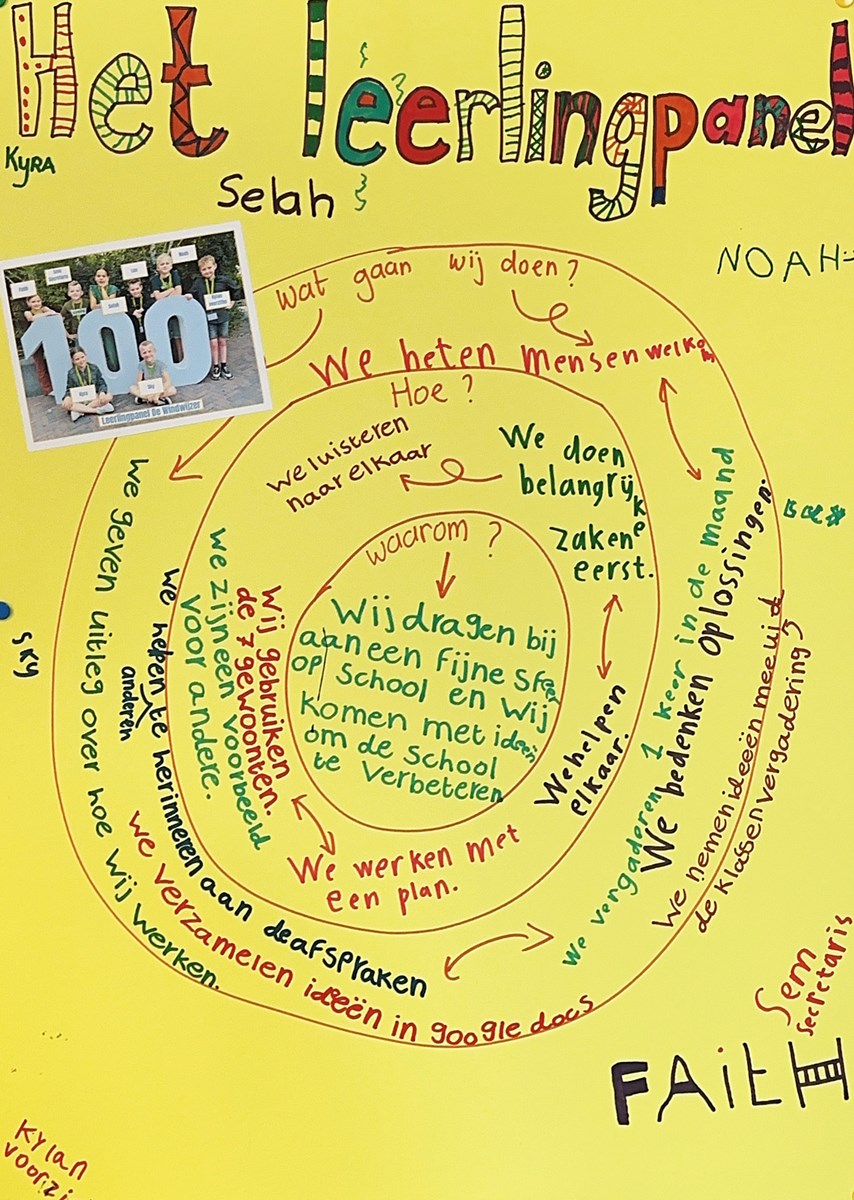 Het leerlingpanel
KYRA
Selah
NOAH
100
Leerlingpanel De Windwijzer
wat gaan wij doen?
We heten mensen welkom
We vergaderen 1 keer in de maand
We bedenken oplossingen.
We nemen ideeën mee uit
de klassenvergadering
We geven uitleg over hoe wij werken.
We helpen te herinneren aan de afspraken
anderen
We verzamelen ideeën in google docs
Hoe?
We luisteren
naar elkaar
We doen
belangrijke
zaken
eerst.
We helpen
elkaar.
We werken met
een plan.
Wij gebruiken
de 7 gewoonten.
We zijn een voorbeeld
voor andere.
waarom?
Wij dragen bij
aan een fijne sfeer
op school en wij
komen met ideeën
om de school
te verbeteren
SKY
Sem
secretaris
FAitH
Kylan
voorzi